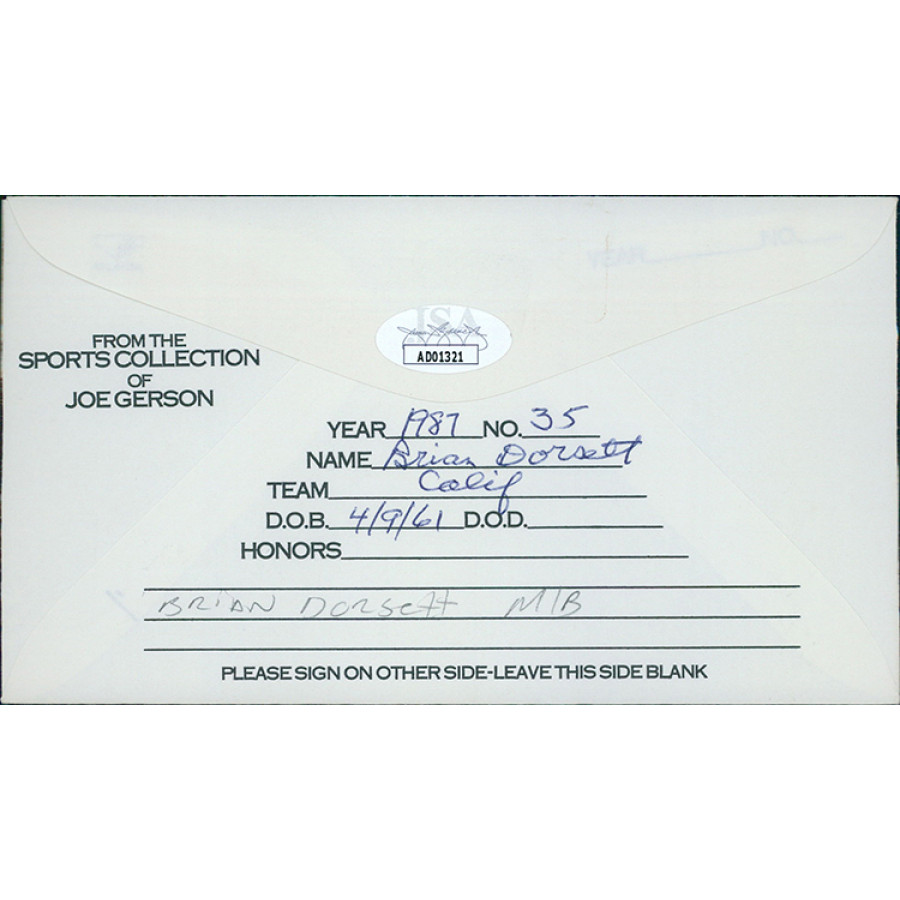 JSA
AD01321
FROM THE
SPORTS COLLECTION
OF
JOE GERSON
YEAR 1987 NO. 35
NAME Brian Dorsett
TEAM Calif
D.O.B. 4/9/61 D.O.D.
HONORS
BRIAN DORSETT MIB
PLEASE SIGN ON OTHER SIDE-LEAVE THIS SIDE BLANK